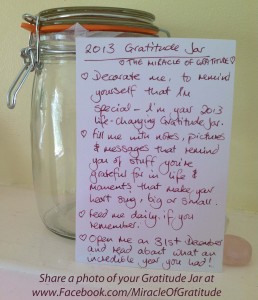 2013 Gratitude Jar
♡ THE MIRACLE OF GRATITUDE ♡
♡ Decorate me, to remind
yourself that I'm
special - I'm your 2013
life-changing Gratitude Jar.
♡ Fill me with notes, pictures
& messages that remind
you of stuff you're
grateful for in life &
moments that make your
heart sing, big or small.
♡ Feed me daily, if you
remember.
♡ Open me on 31st December
and read about what an
incredible year you had!
Share a photo of your Gratitude Jar at
www.Facebook.com/MiracleOfGratitude